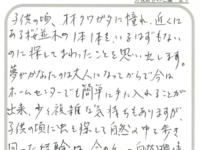 子供の頃、オオクワガタに憧れ、近くに
ある桜並木の1本1本をいるはずもない
のに探してまわったことを思い出します。
夢がかなったのは大人になってからで今は
ホームセンターでも簡単に手に入れることが
出来、少々複雑な気持ちもありますが、
子供の頃に虫を探して自然の中を歩き
回った経験は、今の